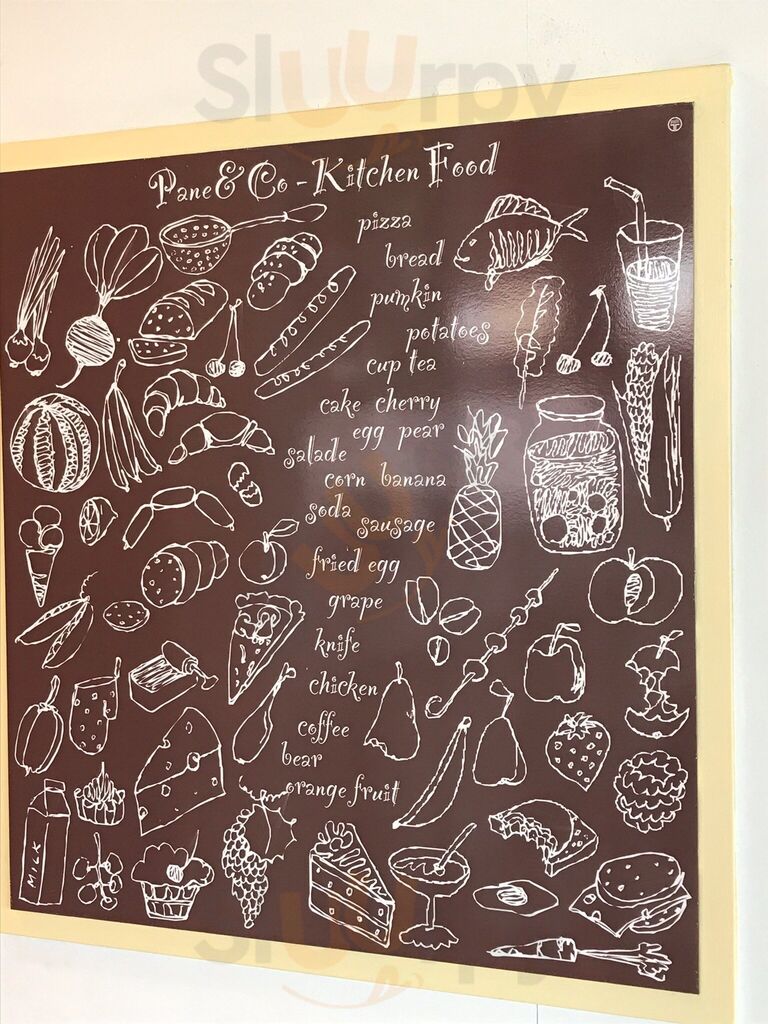 Sluurpy
Pane & Co - Kitchen Food
pizza
bread
pumkin
potatoes
cup tea
cake cherry
egg pear
salade
corn banana
soda
sausage
fried egg
grape
knife
chicken
coffee
bear
orange fruit
MILK
Sluurpy